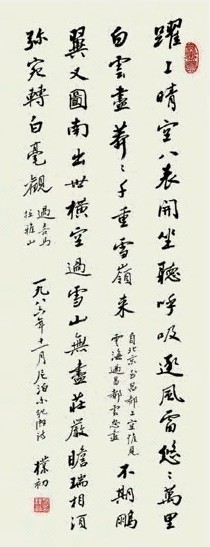 躍上晴空八表開坐聽呼吸逐風雷悠〻萬里
白雲盡莽〻千重雪嶺来
自北京至昌都上空惟見
雲海過昌都雲忽盡
不期鵬
翼又圖南出世橫空過雪山無盡莊嚴瞻瑞相須
弥宛轉白毫觀
過喜馬
拉雅山
一九八六年十一月尼泊尔纪游诗
樸初